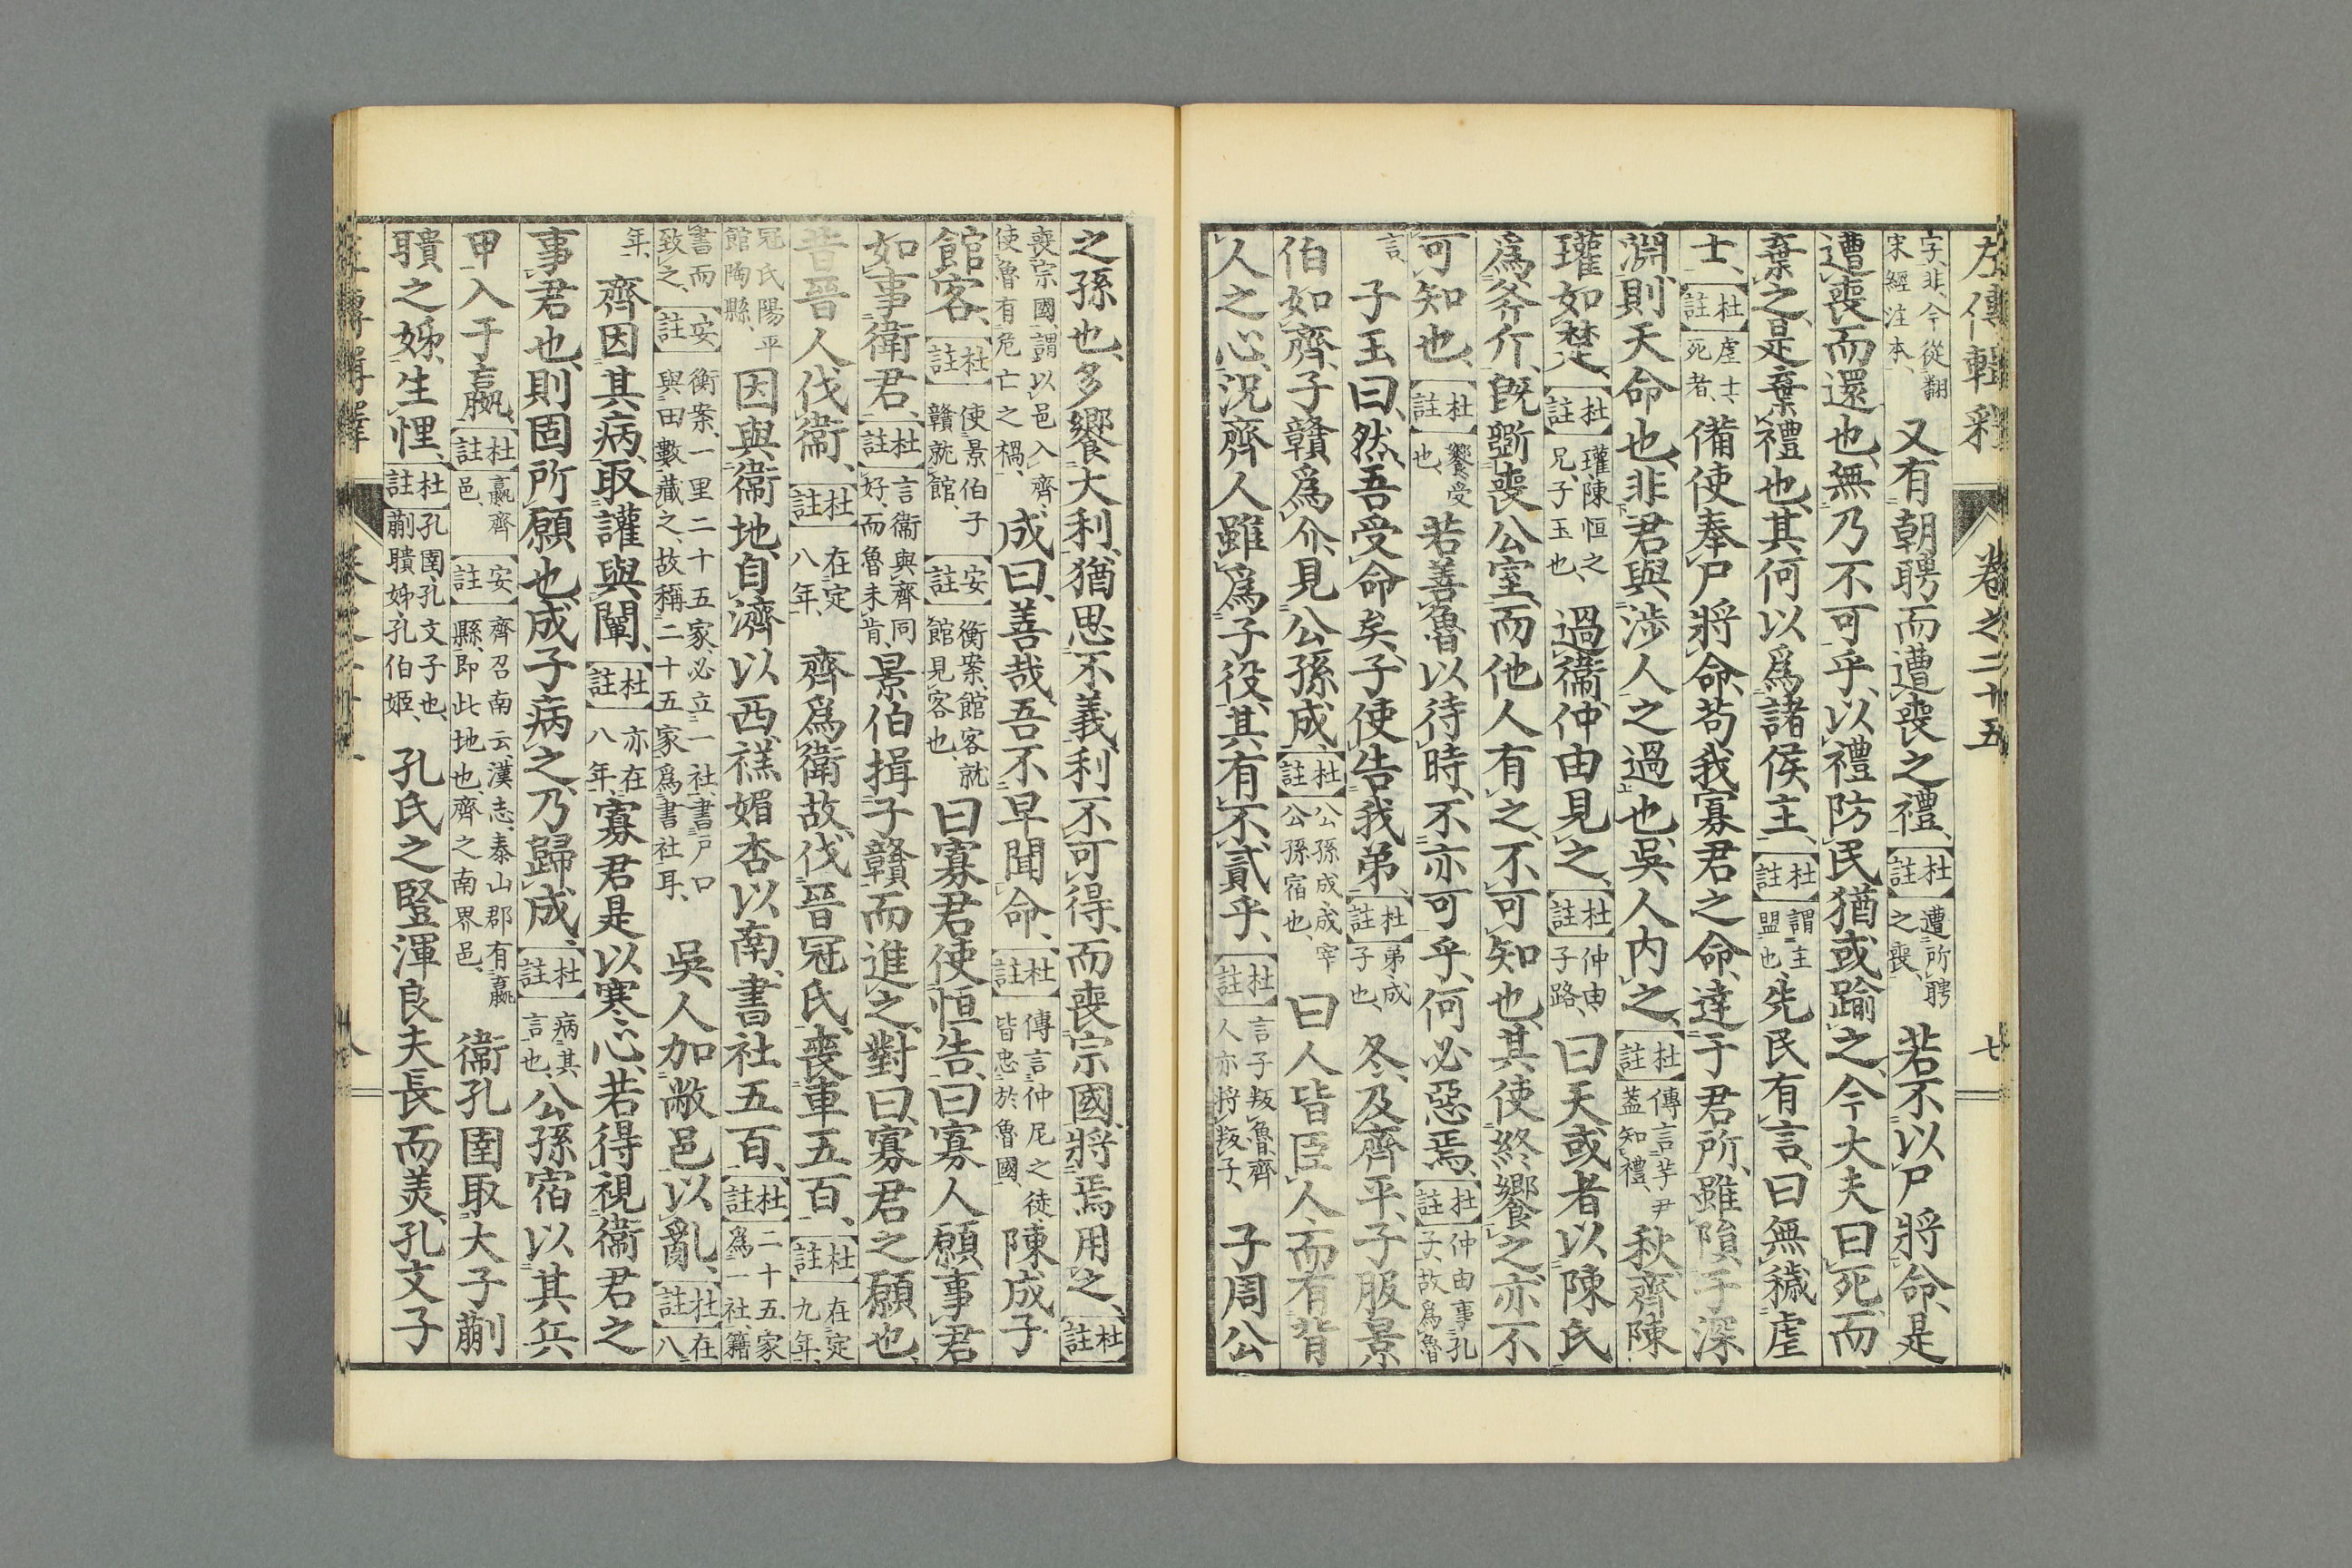 左傳輯釋 卷之二十五 七
字、非、今從翻宋經注本、又有朝聘而遭喪之禮、【杜註】遭所聘之喪、若不以尸將命、是
遭喪而還也、無乃不可乎、以禮防民、猶或踰之、今大夫曰、死而
棄之、是棄禮也、其何以爲諸侯主、【杜註】謂主盟也、先民有言、曰、無穢虐
士、【杜註】虐士、死者、備使奉尸將命、苟我寡君之命、達于君所、雖隕于深
淵、則天命也、非君與涉人之過也、吳人內之、【杜註】傳言芋尹蓋知禮、秋、齊陳
瓘如楚、【杜註】瓘、陳恒之兄、子玉也、過衞、仲由見之、【杜註】仲由、子路、曰、天或者以陳氏
爲斧斤、旣斲喪公室、而他人有之、不可知也、其使終饗之、亦不
可知也、【杜註】饗、受也、若善魯以待時、不亦可乎、何必惡焉、【杜註】仲由事孔子、故爲魯
言、子玉曰、然、吾受命矣、子使告我弟、【杜註】弟、成子也、冬、及齊平、子服景
伯如齊、子贛爲介、見公孫成、【杜註】公孫成、成宰公孫宿也、曰、人皆臣人、而有背
人之心、況齊人雖爲子役、其有不貳乎、【杜註】言子叛魯、齊人亦將叛子、子、周公
之孫也、多饗大利、猶思不義、利不可得、而喪宗國、將焉用之、【杜註】
喪宗國、謂以邑入齊、使魯有危亡之禍、成曰、善哉、吾不早聞命、【杜註】傳言仲尼之徒、皆忠於魯國、陳成子
館客、【杜註】使景伯子贛就館、【安註】衡案、館客、就館見客也、曰、寡君使恒告曰、寡人願事君
如事衞君、【杜註】言衞與齊同好、而魯未肯、景伯揖子贛而進之、對曰、寡君之願也、
昔晉人伐衞、【杜註】在定八年、齊爲衞故、伐晉冠氏、喪車五百、【杜註】在定九年、
冠氏、陽平館陶縣、因與衞地、自濟以西、禚媚杏以南、書社五百、【杜註】二十五家爲一社、籍
書而致之、【安註】衡案、一里二十五家、必立一社、書戶口與田數藏之、故稱二十五家爲書社耳、吳人加敝邑以亂、【杜註】在八
年、齊因其病、取讙與闡、【杜註】亦在八年、寡君是以寒心、若得視衞君之
事君也、則固所願也、成子病之、乃歸成、【杜註】病其言也、公孫宿以其兵
甲入于嬴、【杜註】嬴、齊邑、【安註】齊召南云、漢志、泰山郡有嬴縣、卽此地也、齊之南界邑、衞孔圉取大子蒯
聵之姊、生悝、【杜註】孔圉、孔文子也、蒯聵姊、孔伯姬、孔氏之豎渾良夫長而美、孔文子